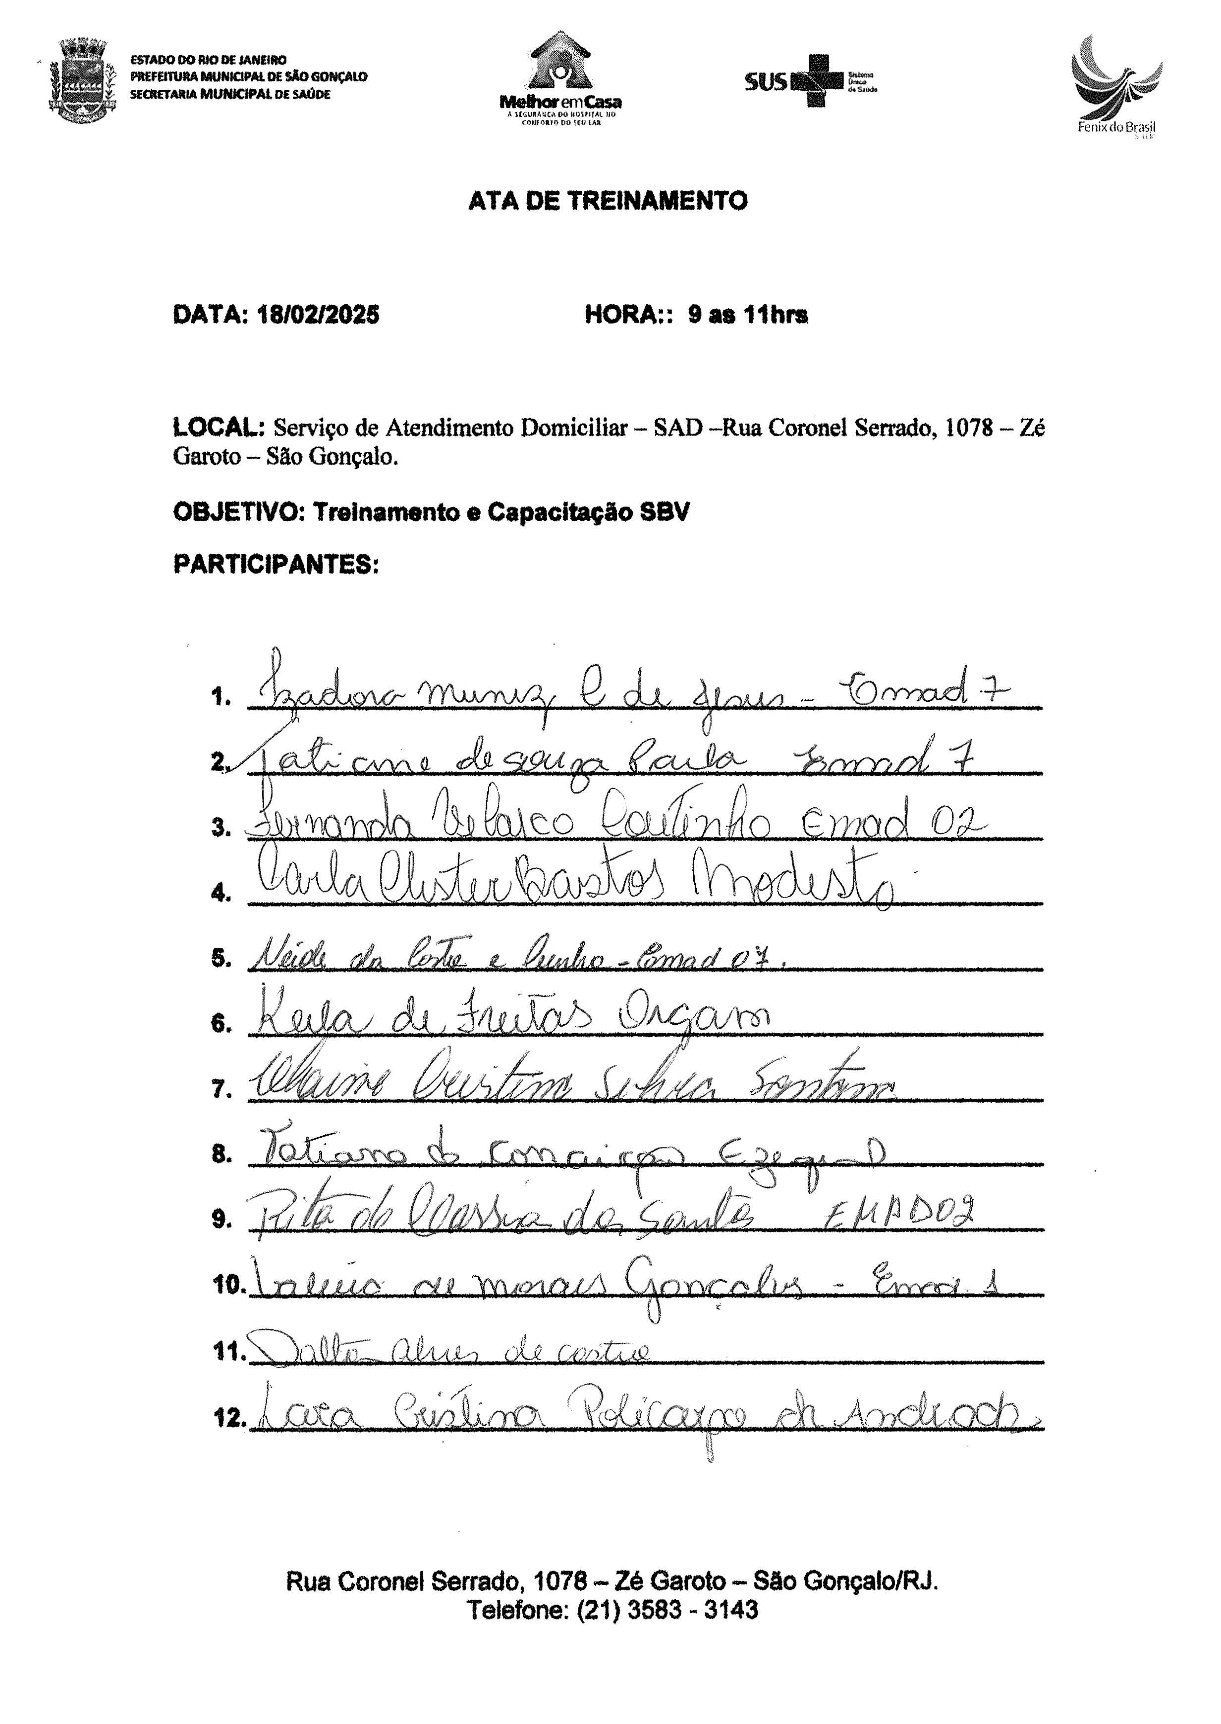 ESTADO DO RIO DE JANEIRO
PREFEITURA MUNICIPAL DE SÃO GONÇALO
SECRETARIA MUNICIPAL DE SAÚDE
Melhor em Casa
A SEGURANÇA DO HOSPITAL NO
CONFORTO DO SEU LAR
SUS
Sistema
Único
de Saúde
Fenix do Brasil
ATA DE TREINAMENTO
DATA: 18/02/2025 HORA:: 9 as 11hrs
LOCAL: Serviço de Atendimento Domiciliar – SAD –Rua Coronel Serrado, 1078 – Zé
Garoto – São Gonçalo.
OBJETIVO: Treinamento e Capacitação SBV
PARTICIPANTES:
1. Izadora Muniz C de Jesus - Emad 7
2. Tatiane de Souza Paula Emad 7
3. Fernanda Velasco Coutinho Emad 02
4. Carla Bastos Modesto
5. Neide da Costa e Cunha - Emad 07.
6. Keila de Freitas Orgam
7. Cristina Silva Santana
8. Tatiana da Conceição
9. Rita de Cassia dos Santos EMAD02
10. de Morais Gonçalves - Emad 1
11. Alves de Castro
12. Lara Cristina Policarpo de Andrade
Rua Coronel Serrado, 1078 – Zé Garoto – São Gonçalo/RJ.
Telefone: (21) 3583 - 3143